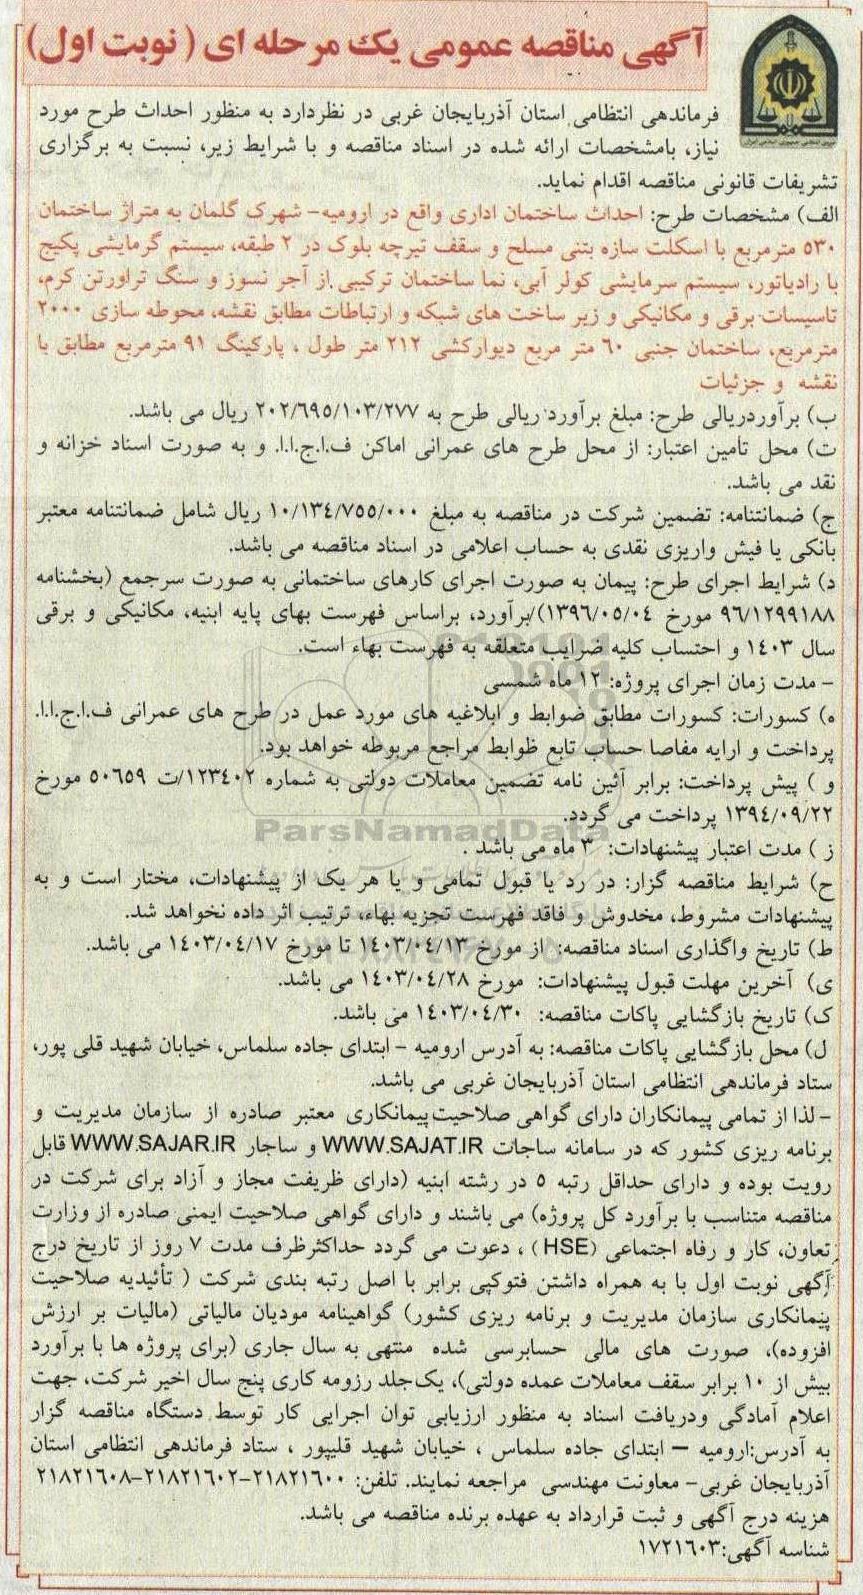 آگهی مناقصه عمومی یک مرحله ای (نوبت اول)
فرماندهی انتظامی استان آذربایجان غربی در نظردارد به منظور احداث طرح مورد
نیاز، بامشخصات ارائه شده در اسناد مناقصه و با شرایط زیر، نسبت به برگزاری
تشریفات قانونی مناقصه اقدام نماید.
الف) مشخصات طرح: احداث ساختمان اداری واقع در ارومیه- شهرک گلمان به متراژ ساختمان
۵۳۰ مترمربع با اسکلت سازه بتنی مسلح و سقف تیرچه بلوک در ۲ طبقه، سیستم گرمایشی پکیج
با رادیاتور، سیستم سرمایشی کولر آبی، نما ساختمان ترکیبی از آجر نسوز و سنگ تراورتن کرم،
تاسیسات برقی و مکانیکی و زیر ساخت های شبکه و ارتباطات مطابق نقشه، محوطه سازی ۲۰۰۰
مترمربع، ساختمان جنبی ۶۰ متر مربع دیوارکشی ۲۱۲ متر طول ، پارکینگ ۹۱ مترمربع مطابق با
نقشه و جزئیات
ب) برآوردریالی طرح: مبلغ برآورد ریالی طرح به ۲۰۲/۶۹۵/۱۰۳/۲۷۷ ریال می باشد.
ت) محل تامین اعتبار: از محل طرح های عمرانی اماکن ف.ا.ج.ا.ا. و به صورت اسناد خزانه و
نقد می باشد.
ج) ضمانتنامه: تضمین شرکت در مناقصه به مبلغ ۱۰/۱۳۴/۷۵۵/۰۰۰ ریال شامل ضمانتنامه معتبر
بانکی یا فیش واریزی نقدی به حساب اعلامی در اسناد مناقصه می باشد.
د) شرایط اجرای طرح: پیمان به صورت اجرای کارهای ساختمانی به صورت سرجمع (بخشنامه
۹۶/۱۲۹۹۱۸۸ مورخ ۱۳۹۶/۰۵/۰۴)/برآورد، براساس فهرست بهای پایه ابنیه، مکانیکی و برقی
سال ۱۴۰۳ و احتساب کلیه ضرایب متعلقه به فهرست بهاء است.
- مدت زمان اجرای پروژه: ۱۲ ماه شمسی
ه) کسورات: کسورات مطابق ضوابط و ابلاغیه های مورد عمل در طرح های عمرانی ف.ا.ج.ا.ا.
پرداخت و ارایه مفاصا حساب تابع ظوابط مراجع مربوطه خواهد بود.
و ) پیش پرداخت: برابر آئین نامه تضمین معاملات دولتی به شماره ۱۲۳۴۰۲/ت ۵۰۶۵۹ مورخ
۱۳۹۴/۰۹/۲۲ پرداخت می گردد.
ParsNamadData
ز ) مدت اعتبار پیشنهادات: ۳ ماه می باشد .
ح) شرایط مناقصه گزار: در رد یا قبول تمامی و یا هر یک از پیشنهادات، مختار است و به
پیشنهادات مشروط، مخدوش و فاقد فهرست تجزیه بهاء، ترتیب اثر داده نخواهد شد.
ط) تاریخ واگذاری اسناد مناقصه: از مورخ ۱۴۰۳/۰۴/۱۳ تا مورخ ۱۴۰۳/۰۴/۱۷ می باشد.
ی) آخرین مهلت قبول پیشنهادات: مورخ ۱۴۰۳/۰۴/۲۸ می باشد.
ک) تاریخ بازگشایی پاکات مناقصه: ۱۴۰۳/۰۴/۳۰ می باشد.
ل) محل بازگشایی پاکات مناقصه: به آدرس ارومیه - ابتدای جاده سلماس، خیابان شهید قلی پور،
ستاد فرماندهی انتظامی استان آذربایجان غربی می باشد.
- لذا از تمامی پیمانکاران دارای گواهی صلاحیت پیمانکاری معتبر صادره از سازمان مدیریت و
برنامه ریزی کشور که در سامانه ساجات WWW.SAJAT.IR و ساجار WWW.SAJAR.IR قابل
رویت بوده و دارای حداقل رتبه ۵ در رشته ابنیه (دارای ظریفت مجاز و آزاد برای شرکت در
مناقصه متناسب با برآورد کل پروژه) می باشند و دارای گواهی صلاحیت ایمنی صادره از وزارت
تعاون، کار و رفاه اجتماعی (HSE) ، دعوت می گردد حداکثرظرف مدت ۷ روز از تاریخ درج
آگهی نوبت اول با به همراه داشتن فتوکپی برابر با اصل رتبه بندی شرکت ( تأئیدیه صلاحیت
پیمانکاری سازمان مدیریت و برنامه ریزی کشور) گواهینامه مودیان مالیاتی (مالیات بر ارزش
افزوده)، صورت های مالی حسابرسی شده منتهی به سال جاری (برای پروژه ها با برآورد
بیش از ۱۰ برابر سقف معاملات عمده دولتی)، یک‌جلد رزومه کاری پنج سال اخیر شرکت، جهت
اعلام آمادگی ودریافت اسناد به منظور ارزیابی توان اجرایی کار توسط دستگاه مناقصه گزار
به آدرس:ارومیه – ابتدای جاده سلماس ، خیابان شهید قلیپور ، ستاد فرماندهی انتظامی استان
آذربایجان غربی- معاونت مهندسی مراجعه نمایند. تلفن: ۲۱۸۲۱۶۰۰-۲۱۸۲۱۶۰۲-۲۱۸۲۱۶۰۸
هزینه درج آگهی و ثبت قرارداد به عهده برنده مناقصه می باشد.
شناسه آگهی:۱۷۲۱۶۰۳